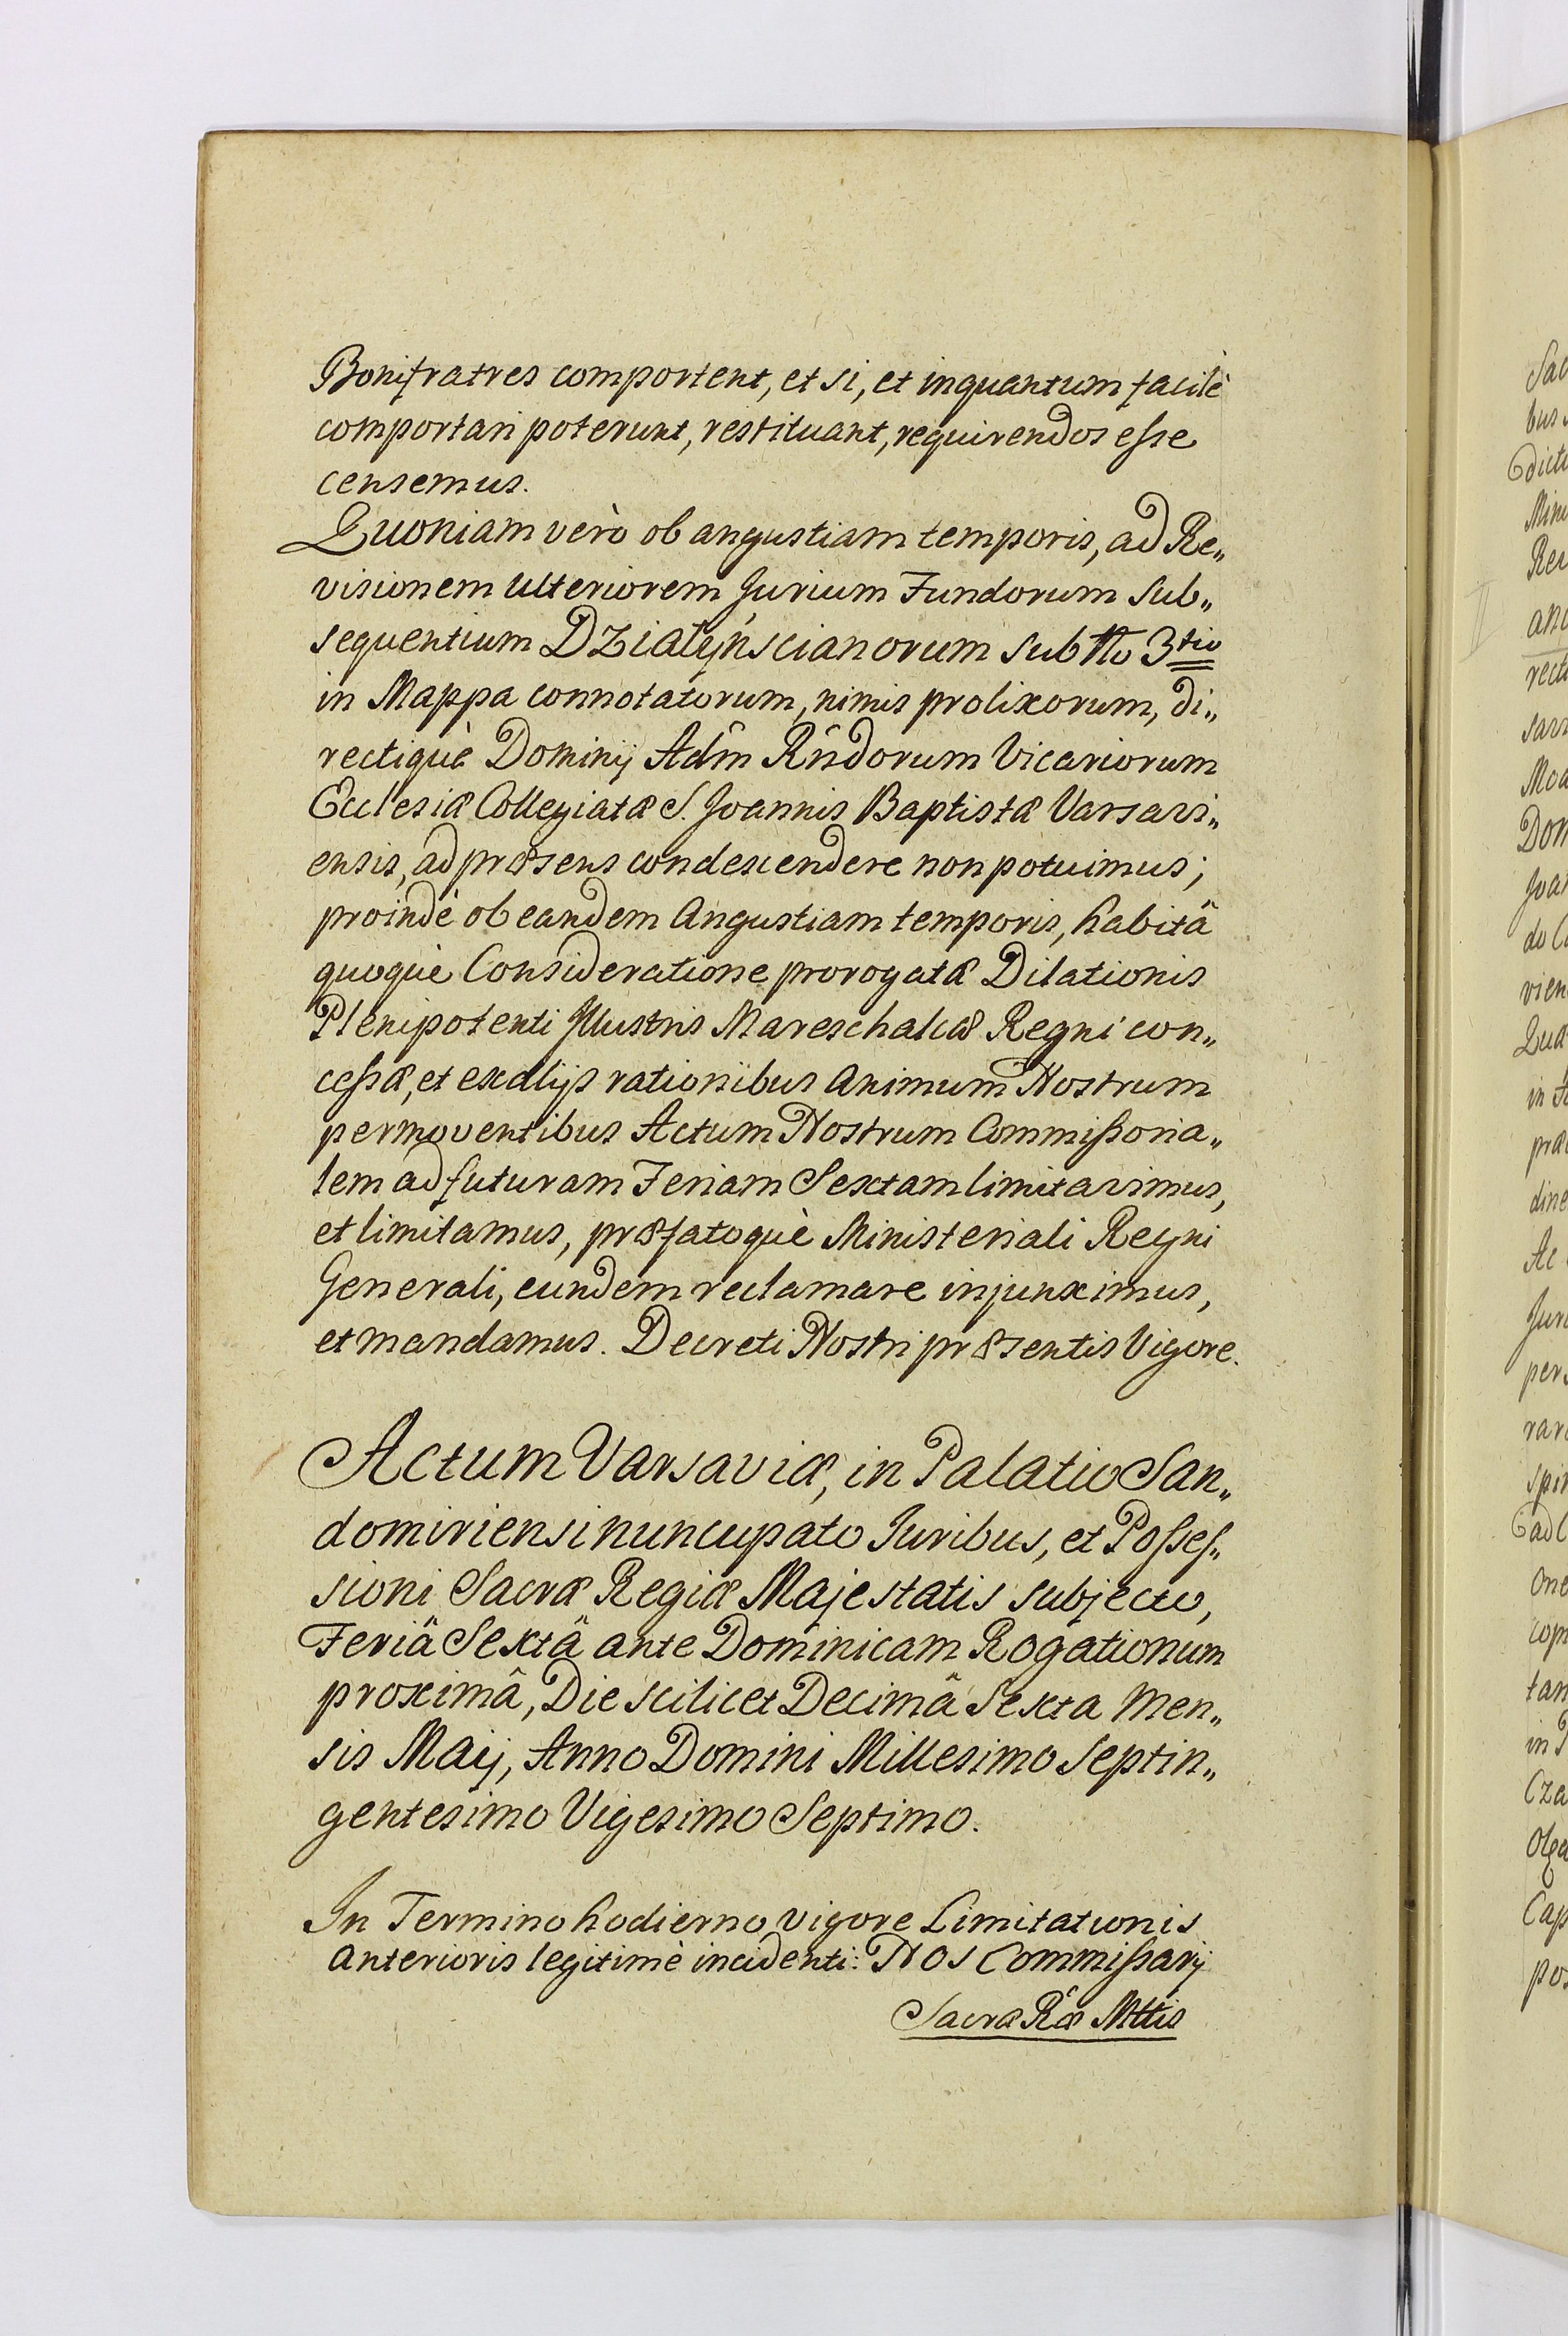 Bonifratres comportent, et si, et inquantum facilè
comportari poterunt, restituant, requirendos eſse
censemus.
Quoniam verò ob angustiam temporis, ad Re„
visionem ulteriorem Jurium Fundorum sub„
sequentium Działyńscianorum sub No 3tio
in Mappa connotatorum, nimis prolixorum, di„
rectiquè Dominij Adm̂ Rn̂dorum Vicariorum
Ecclesiæ Collegiatæ S. Joannis Baptistæ Varsavi„
ensis, ad præsens condescendere non potuimus;
proindè ob eandem Angustiam temporis, habitâ
quoquè Consideratione prorogatæ Dilationis
Plenipotenti Jllustris Mareschalcæ Regni con„
ceſsæ, et ex alijs rationibus animum Nostrum
permoventibus Actum Nostrum Commiſsoria„
lem ad futuram Feriam Sextam limitavimus,
et limitamus, præfatoquè Ministeriali Regni
Generali, eundem reclamare injunximus,
et mandamus. Decreti Nostri præsentis Vigore.
Actum Varsaviæ, in Palatio San„
domiriensi nuncupato Juribus, et Poſseſ„
sioni Sacræ Regiæ Majestatis subjecto,
Feriâ Sextâ ante Dominicam Rogationum
proximâ, Die scilicet Decimâ Sexta Men„
sis Maij, Anno Domini Millesimo Septin„
gentesimo Vigesimo Septimo.
In Termino hodierno vigore Limitationis
anterioris legitimè incidenti: Nos Commiſsarij
Sacræ Ræ Mttis